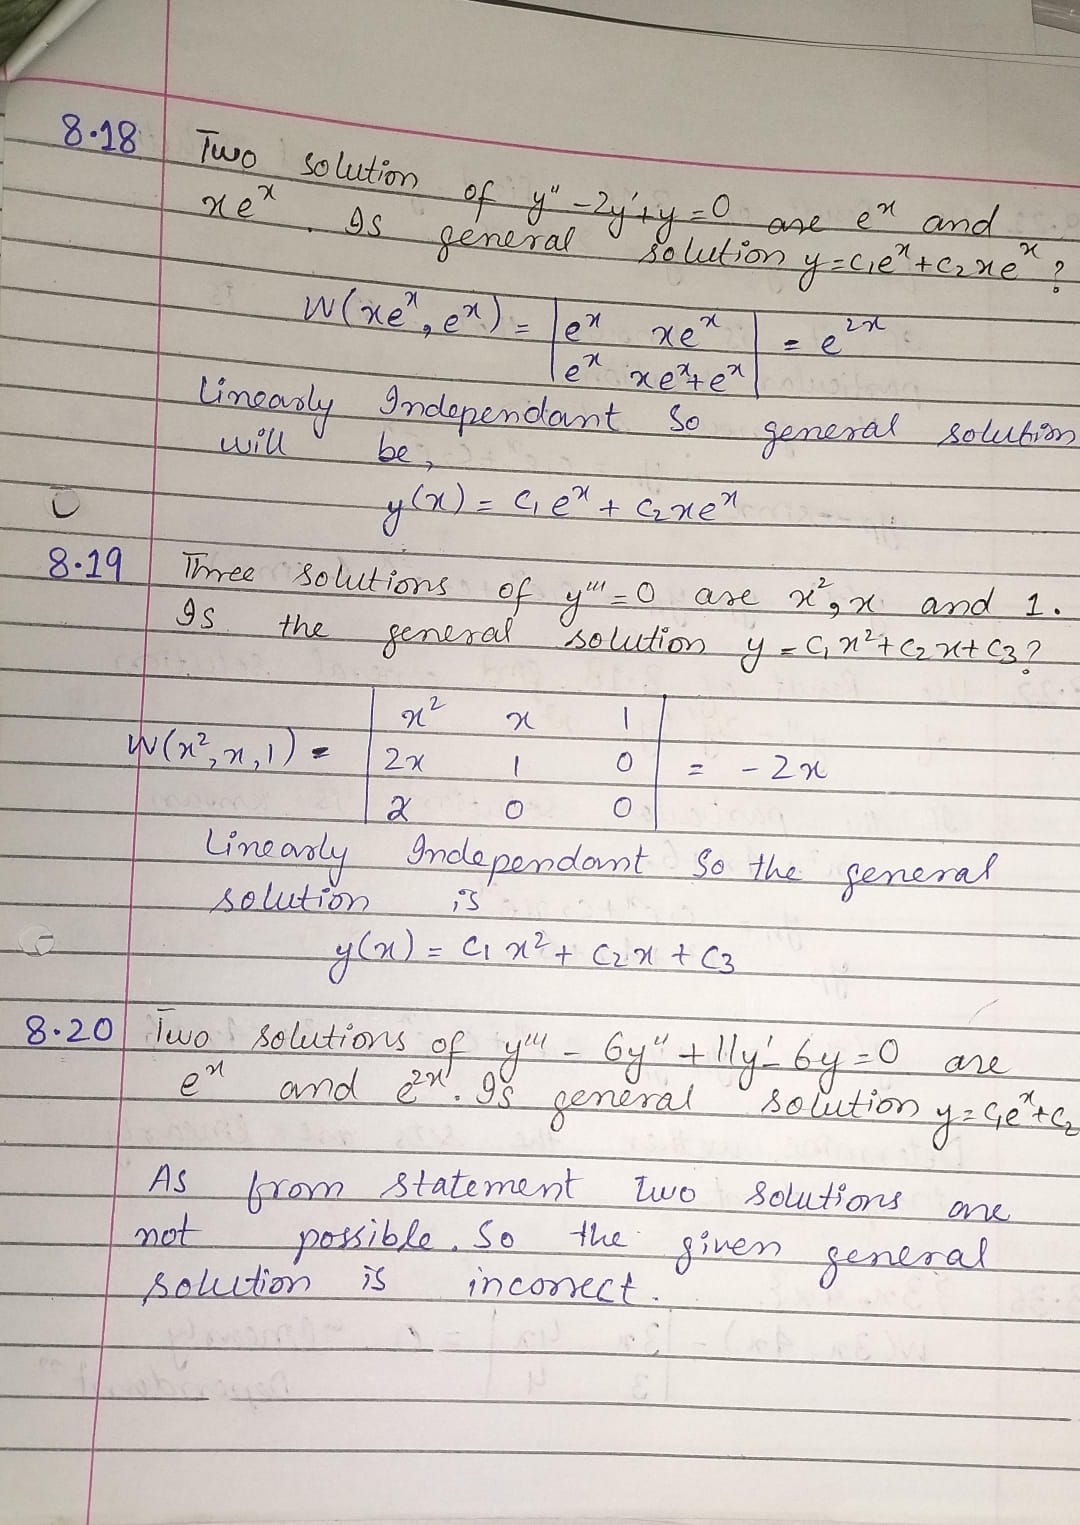 8.18 Two solution of y'' - 2y' + y = 0 are eˣ and
xeˣ. Is general solution y = c₁eˣ + c₂xeˣ ?
W(xeˣ, eˣ) = | eˣ xeˣ | = e²ˣ
| eˣ xeˣ + eˣ |
Linearly Independant So general solution
will be,
y(x) = c₁eˣ + c₂xeˣ
8.19 Three solutions of y''' = 0 are x², x and 1.
Is the general solution y = c₁x² + c₂x + c₃?
| x² x 1 |
W(x², x, 1) = | 2x 1 0 | = -2x
| 2 0 0 |
Linearly Independant So the general
solution is
y(x) = c₁x² + c₂x + c₃
8.20 Two solutions of y''' - 6y'' + 11y' - 6y = 0 are
eˣ and e²ˣ. Is general solution y = c₁eˣ + c₂
As from statement two solutions are
not possible. So the given general
solution is incorrect.